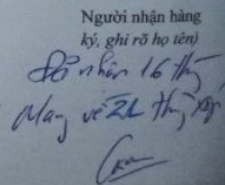 Người nhận hàng
ký, ghi rõ họ tên)
Đã nhận 16 thg
Mang về 2L thùng xốp